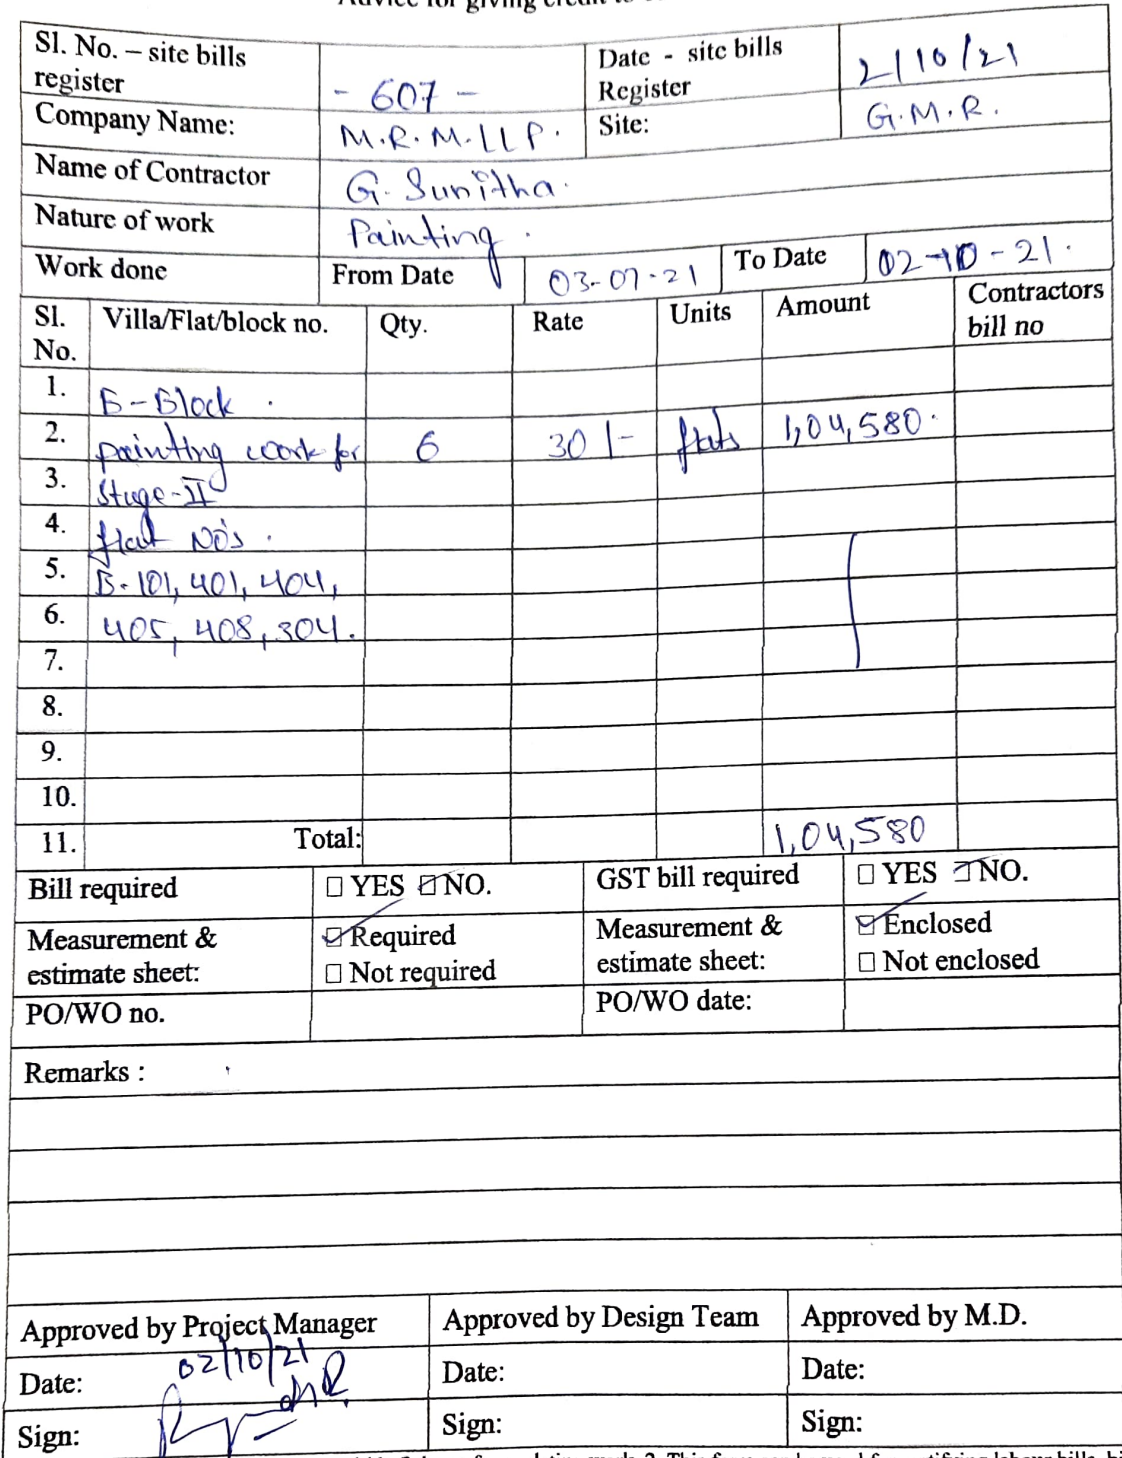 Advice for giving credit to
Sl. No. – site bills register - 607 - Date - site bills Register 2/10/21
Company Name: M.R.M.LLP. Site: G.M.R.
Name of Contractor G. Sunitha.
Nature of work Painting.
Work done From Date 03-07-21 To Date 02-10-21.
Sl. No. Villa/Flat/block no. Qty. Rate Units Amount Contractors bill no
1. B-Block.
2. painting work for 6 30/- flats 1,04,580.
3. Stage-II
4. flat NO's.
5. B-101, 401, 404,
6. 405, 408, 304.
7.
8.
9.
10.
11. Total: 1,04,580
Bill required ☐ YES ☑ NO. GST bill required ☐ YES ☑ NO.
Measurement & estimate sheet: ☑ Required Measurement & estimate sheet: ☑ Enclosed
☐ Not required ☐ Not enclosed
PO/WO no. PO/WO date:
Remarks :
Approved by Project Manager Approved by Design Team Approved by M.D.
Date: 02/10/21 Date: Date:
Sign: Sign: Sign: